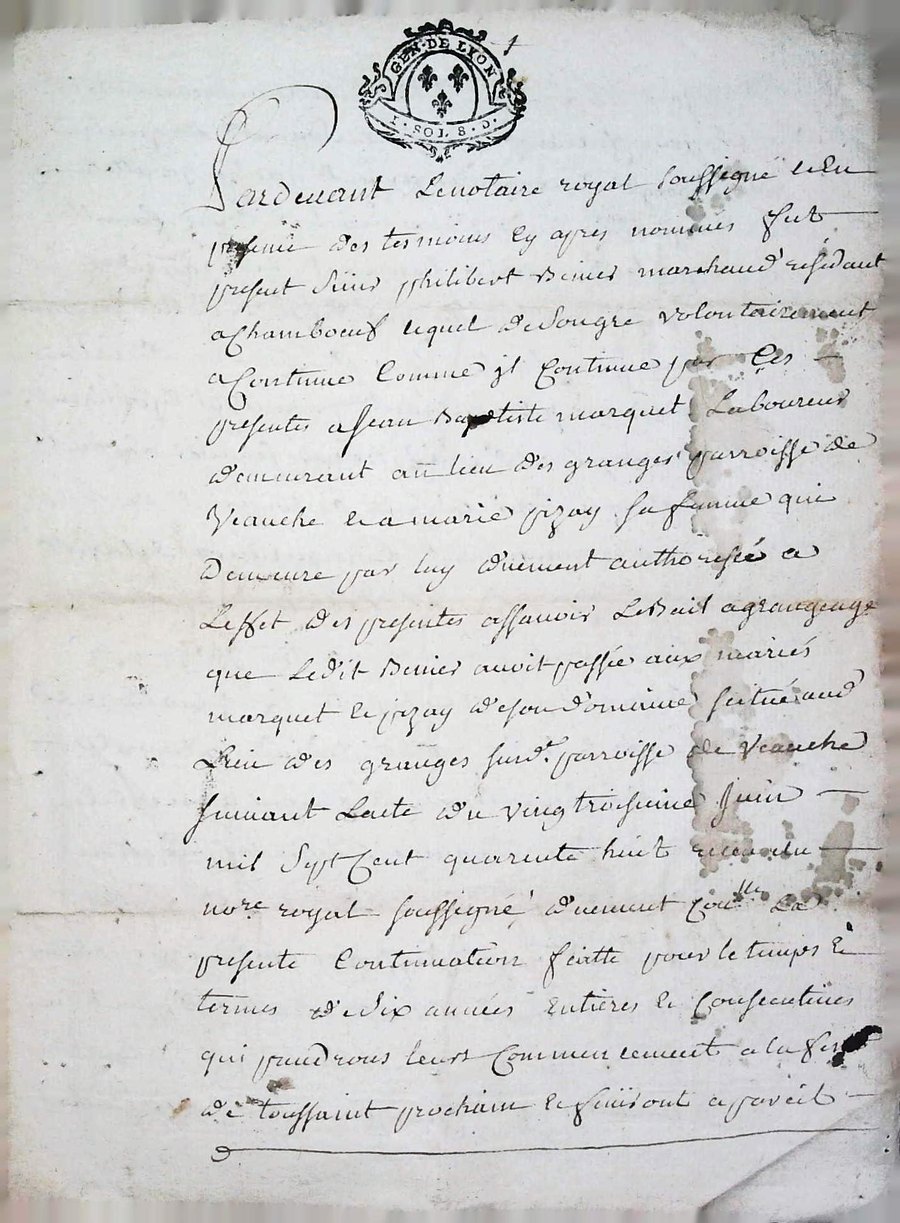 GEN · DE LYON
1 · SOL 8 · D ·
1
Pardevant Lenotaire royal soussigné et En
presence des temoins cy apres nommés fut
present Sieur philibert Benier marchand residant
a Chamboeuf lequel de Son gre volontairement
a Continue Comme jl Continue par Ces
presentes a Jean Baptiste marquet Laboureur
demeurant au lieu des granges parroisse de
Veauche et a marie pizay sa femme qui
Demeure par luy duement authorisée a
Leffet des presentes assavoir Le Bail a grangeage
que Ledit Benier avoit passée aux mariés
marquet et pizay de son Domaine scitué aud
Lieu des granges surd.t parroisse de Veauche
suivant Lacte du vingt troisieme Juin
mil Sept Cent quarente huit receu du
no.re royal soussigné duement Con.lle La
presente Continuation faitte pour le temps Et
termes de Six années Entieres et Consecutives
qui prendrons leurs Commencement a la feste
de toussaint prochain et finiront a pareil